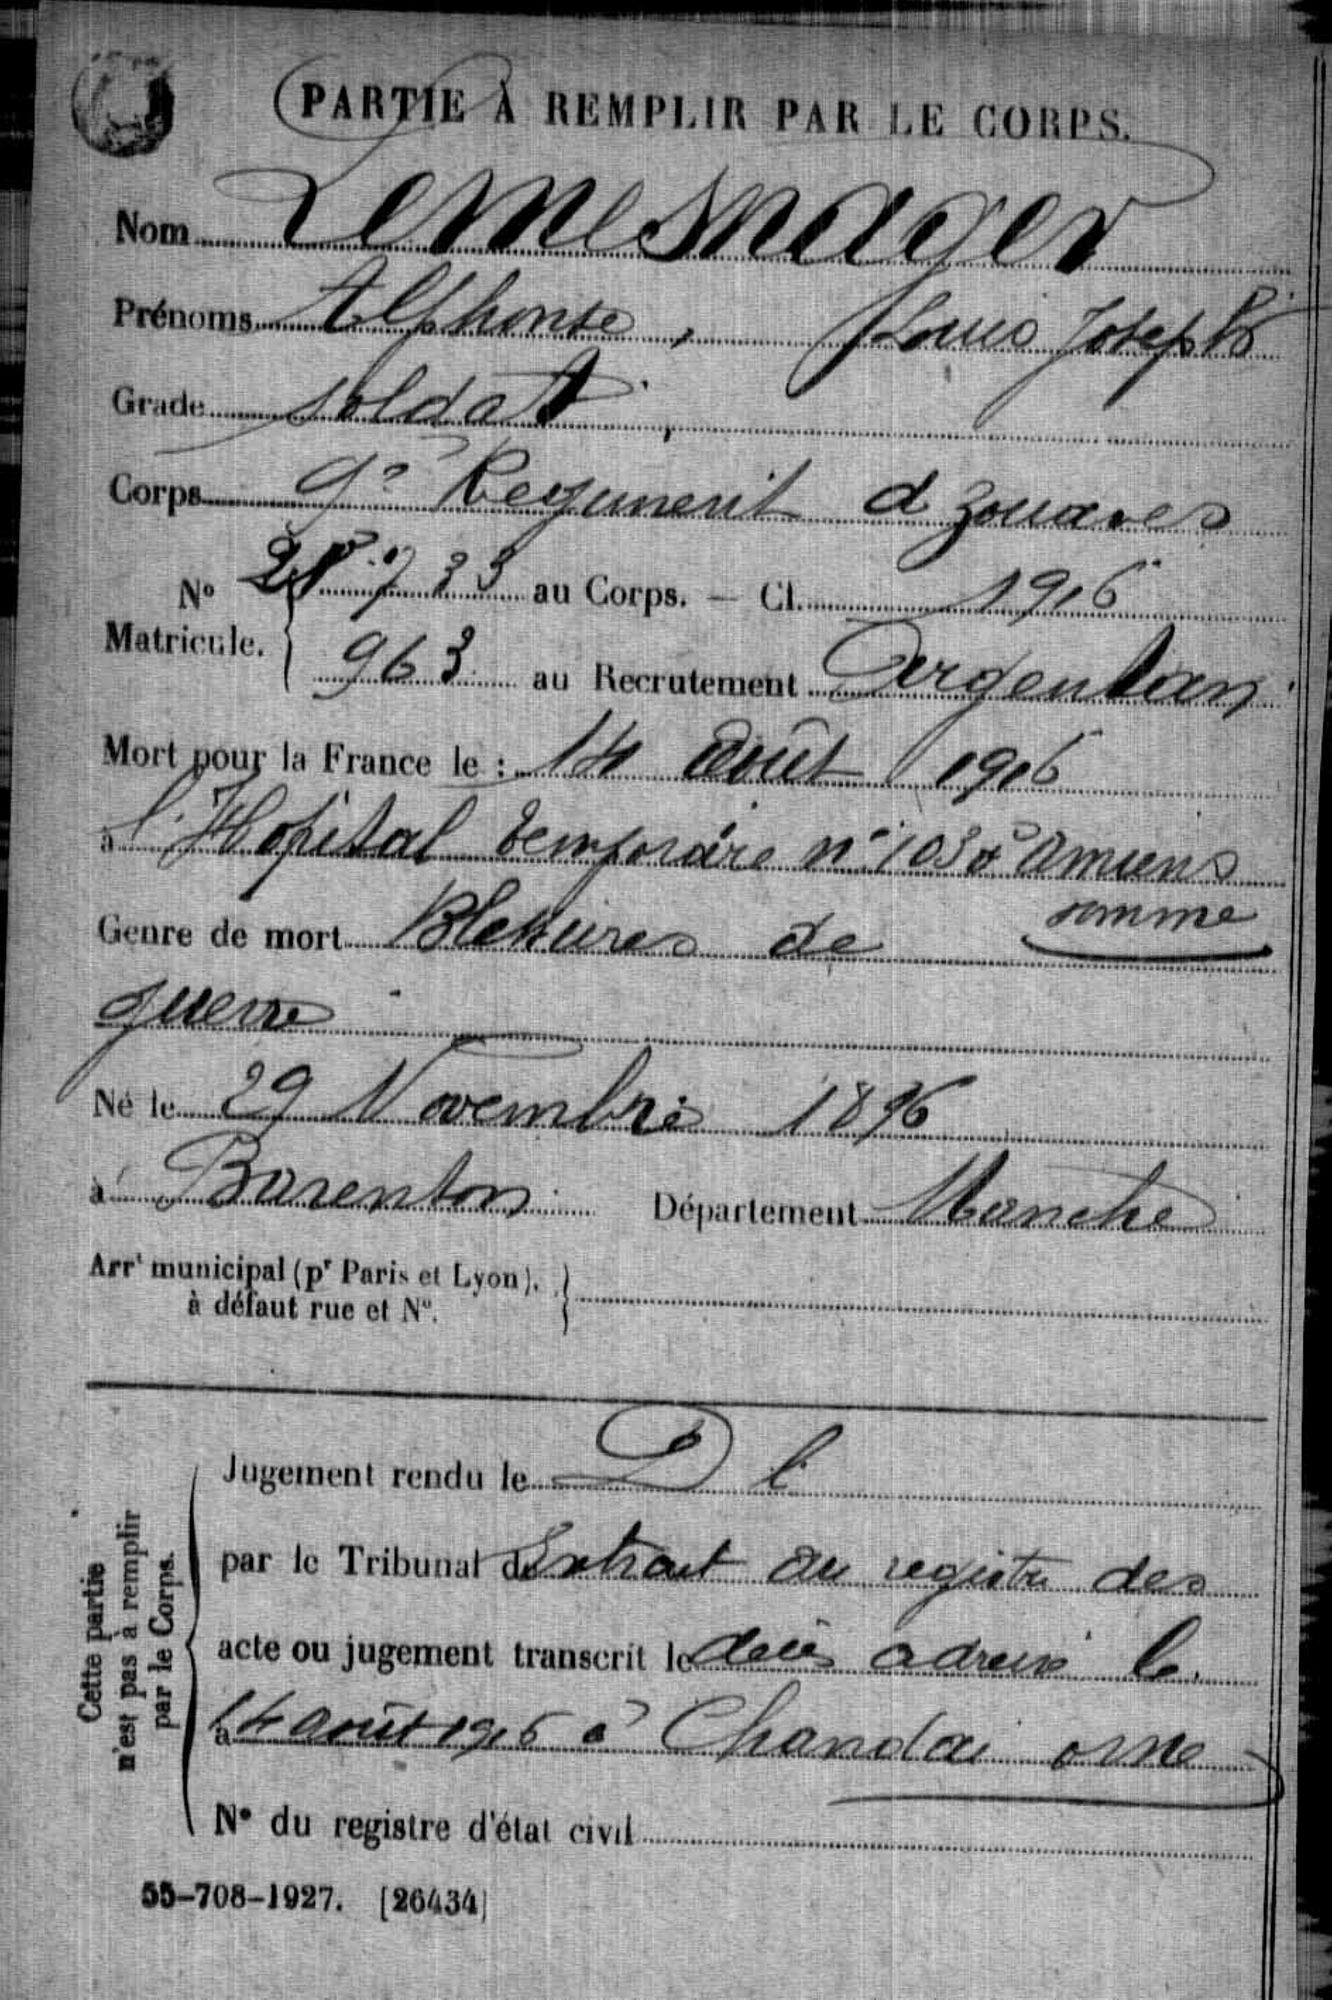 PARTIE À REMPLIR PAR LE CORPS.
Nom Lemesnager
Prénoms Alphonse, Louis Joseph
Grade soldat
Corps 9e Regiment d zouaves
No 733 au Corps. – Cl. 1916
Matricule. 963 au Recrutement Argentan
Mort pour la France le : 14 août 1916
à l'Hopital temporaire n° 103 à Amiens
somme
Genre de mort Blessures de
guerre
Né le 29 Novembre 1896
à Barenton Département Manche
Arrt municipal (pr Paris et Lyon),
à défaut rue et No.
Jugement rendu le D l
par le Tribunal de Extrait du registre des
acte ou jugement transcrit le décès adressé le
à 14 août 1916 à Chandai orne
No du registre d'état civil
Cette partie
n'est pas à remplir
par le Corps.
55-708-1927. [26434]